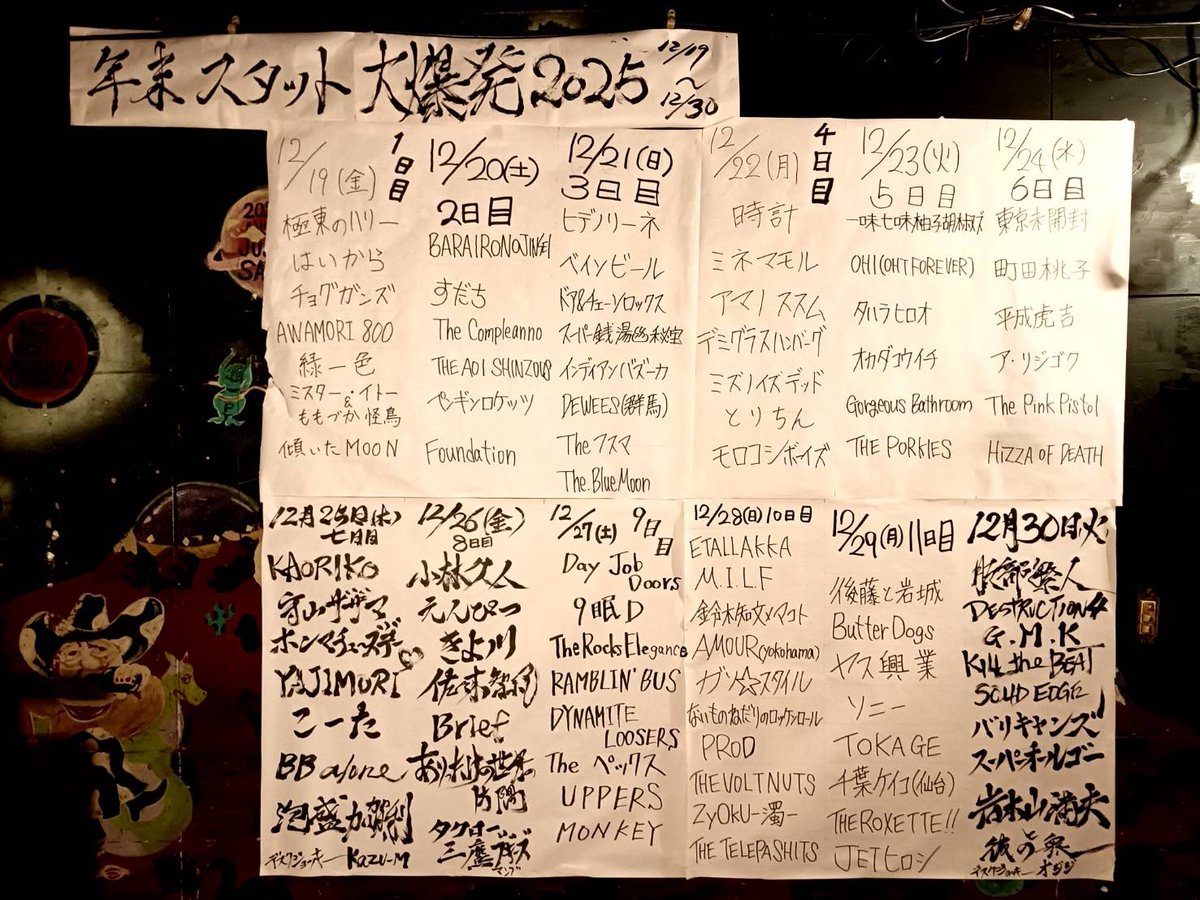 年末スタット大爆発2025 12/19〜12/30
12/19(金) 1日目
極東のハリー
はいから
チョグガンズ
AWAMORI 800
緑一色
ミスター・イトー
&
ももづか怪鳥
傾いたMOON
12/20(土)
2日目
BARAIRONOJINSEI
すだち
The Compleanno
THE AOI SHINZOU
ペンギンロケッツ
Foundation
12/21(日)
3日目
ヒデノリーネ
ベインビール
ドア&チェーンロックス
スーパー銭湯幽秘宝
インディアンバズーカ
DEWEES(群馬)
Theフスマ
The.Blue Moon
12/22(月) 4日目
時計
ミネマモル
アマノススム
デミグラスハンバーグ
ミズノイズデッド
とりちん
モロコシボーイズ
12/23(火)
5日目
一味七味柚子胡椒ズ
OHI(OHT FOREVER)
タハラヒロオ
オカダコウイチ
Gorgeous Bathroom
THE PORKIES
12/24(水)
6日目
東京未開封
町田桃子
平成虎吉
ア・リジゴク
The Pink Pistol
HiZZA OF DEATH
12月25日(木)
七日目
KAORIKO
守山ザザマ
ホンマチューズデー
YAJIMORI
こーた
BB alone
泡盛加賀利
ディスクジョッキー KAZU-M
12/26(金)
8日目
小林久人
えんぴつ
きよ川
Brief
ありったけの世界
片隅
タクロー
三鷹ブギーズ
12/27(土) 9日目
Day Job
Doors
9眠D
The Rocks Elegance
RAMBLIN' BUS
DYNAMITE
LOOSERS
The ペックス
UPPERS
MONKEY
12/28(日)10日目
ETALLAKKA
M.I.L.F
鈴木知文×マコト
AMOUR(yokohama)
ガソ☆スタイル
ないものねだりのロッケンロール
PROD
THE VOLTNUTS
ZyOKU-濁-
THE TELEPASHITS
12/29(月)11日目
後藤と岩城
Butter Dogs
ヤス興業
ソニー
TOKAGE
千葉ケイコ(仙台)
THE ROXETTE!!
JETヒロシ
12月30日火
服部繁人
DESTRUCTION 4
G.M.K
KILL the BEAT
SOLID EDGE
バリキャンズ
スーパーオールゴー
岩木山満夫
ディスクジョッキー オジジ